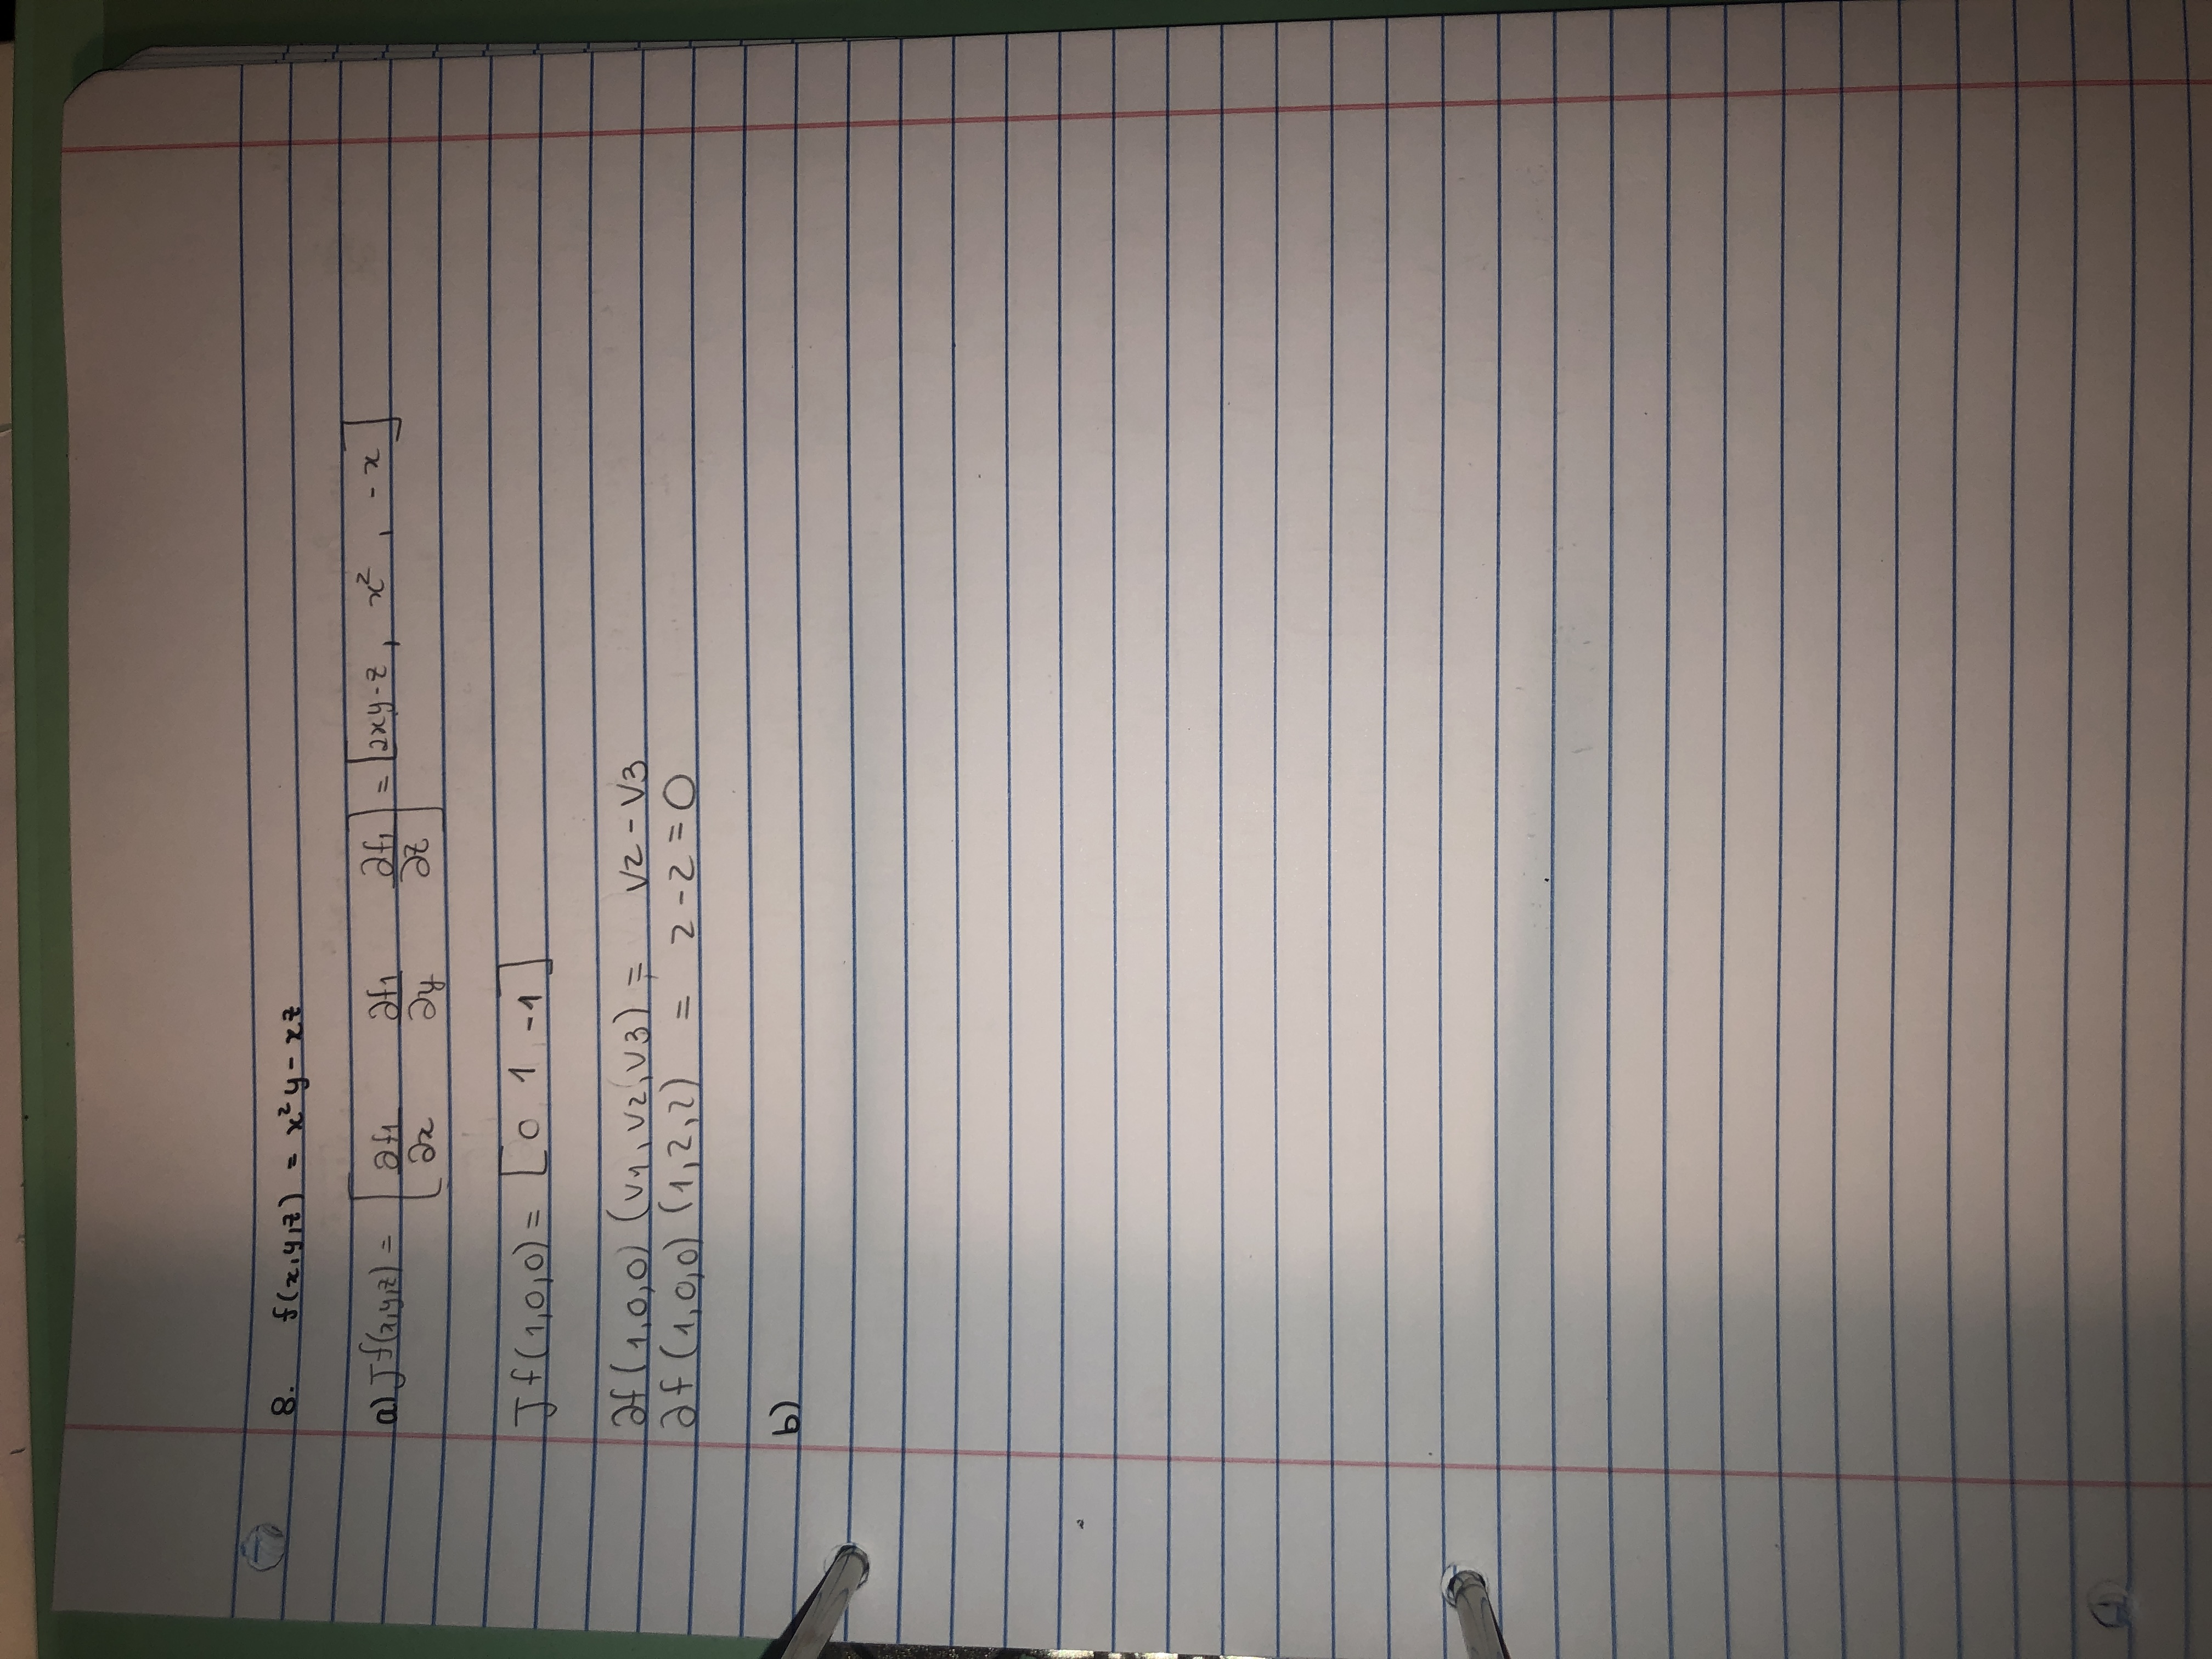 8. f(x,y,z) = x²y - xz
a) Jf(x,y,z) = [∂f1/∂x ∂f1/∂y ∂f1/∂z] = [2xy-z, x², -x]
Jf(1,0,0) = [0 1 -1]
∂f(1,0,0) (v1,v2,v3) = v2 - v3
∂f(1,0,0) (1,2,2) = 2-2=0
b)